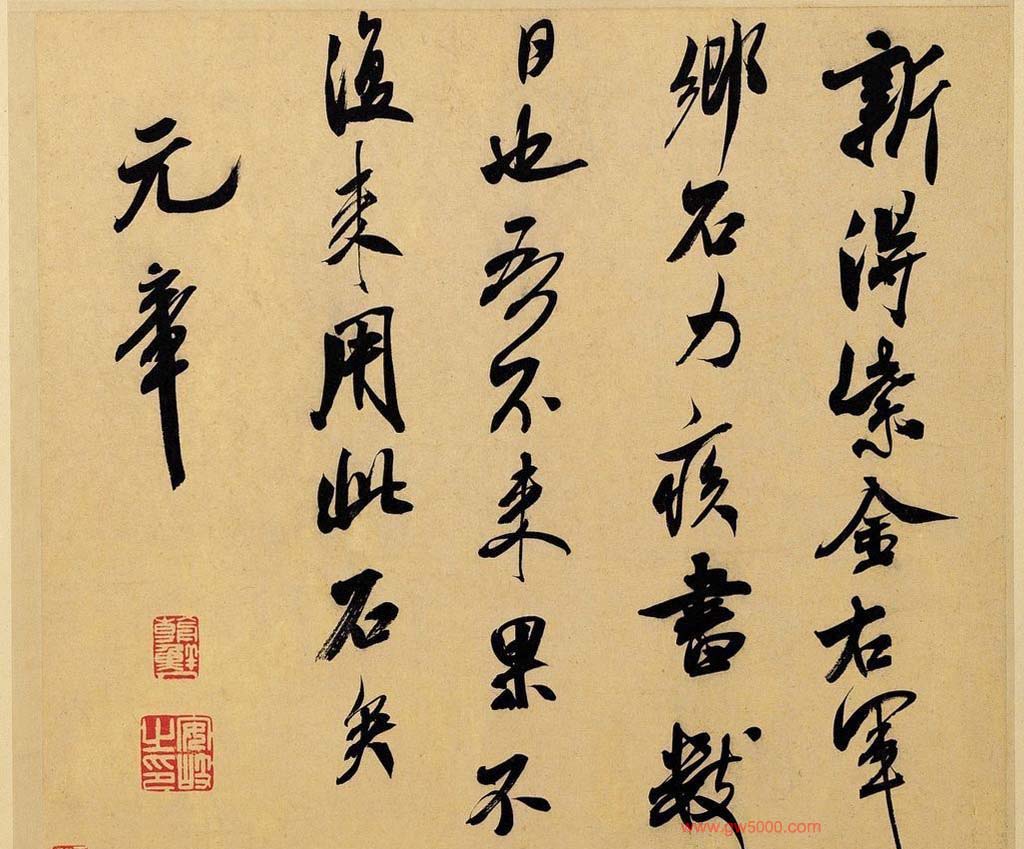 新得紫金右軍
鄉石力疾書數
日也吾不來果不
復來用此石矣
元章
安岐之印
www.gw5000.com